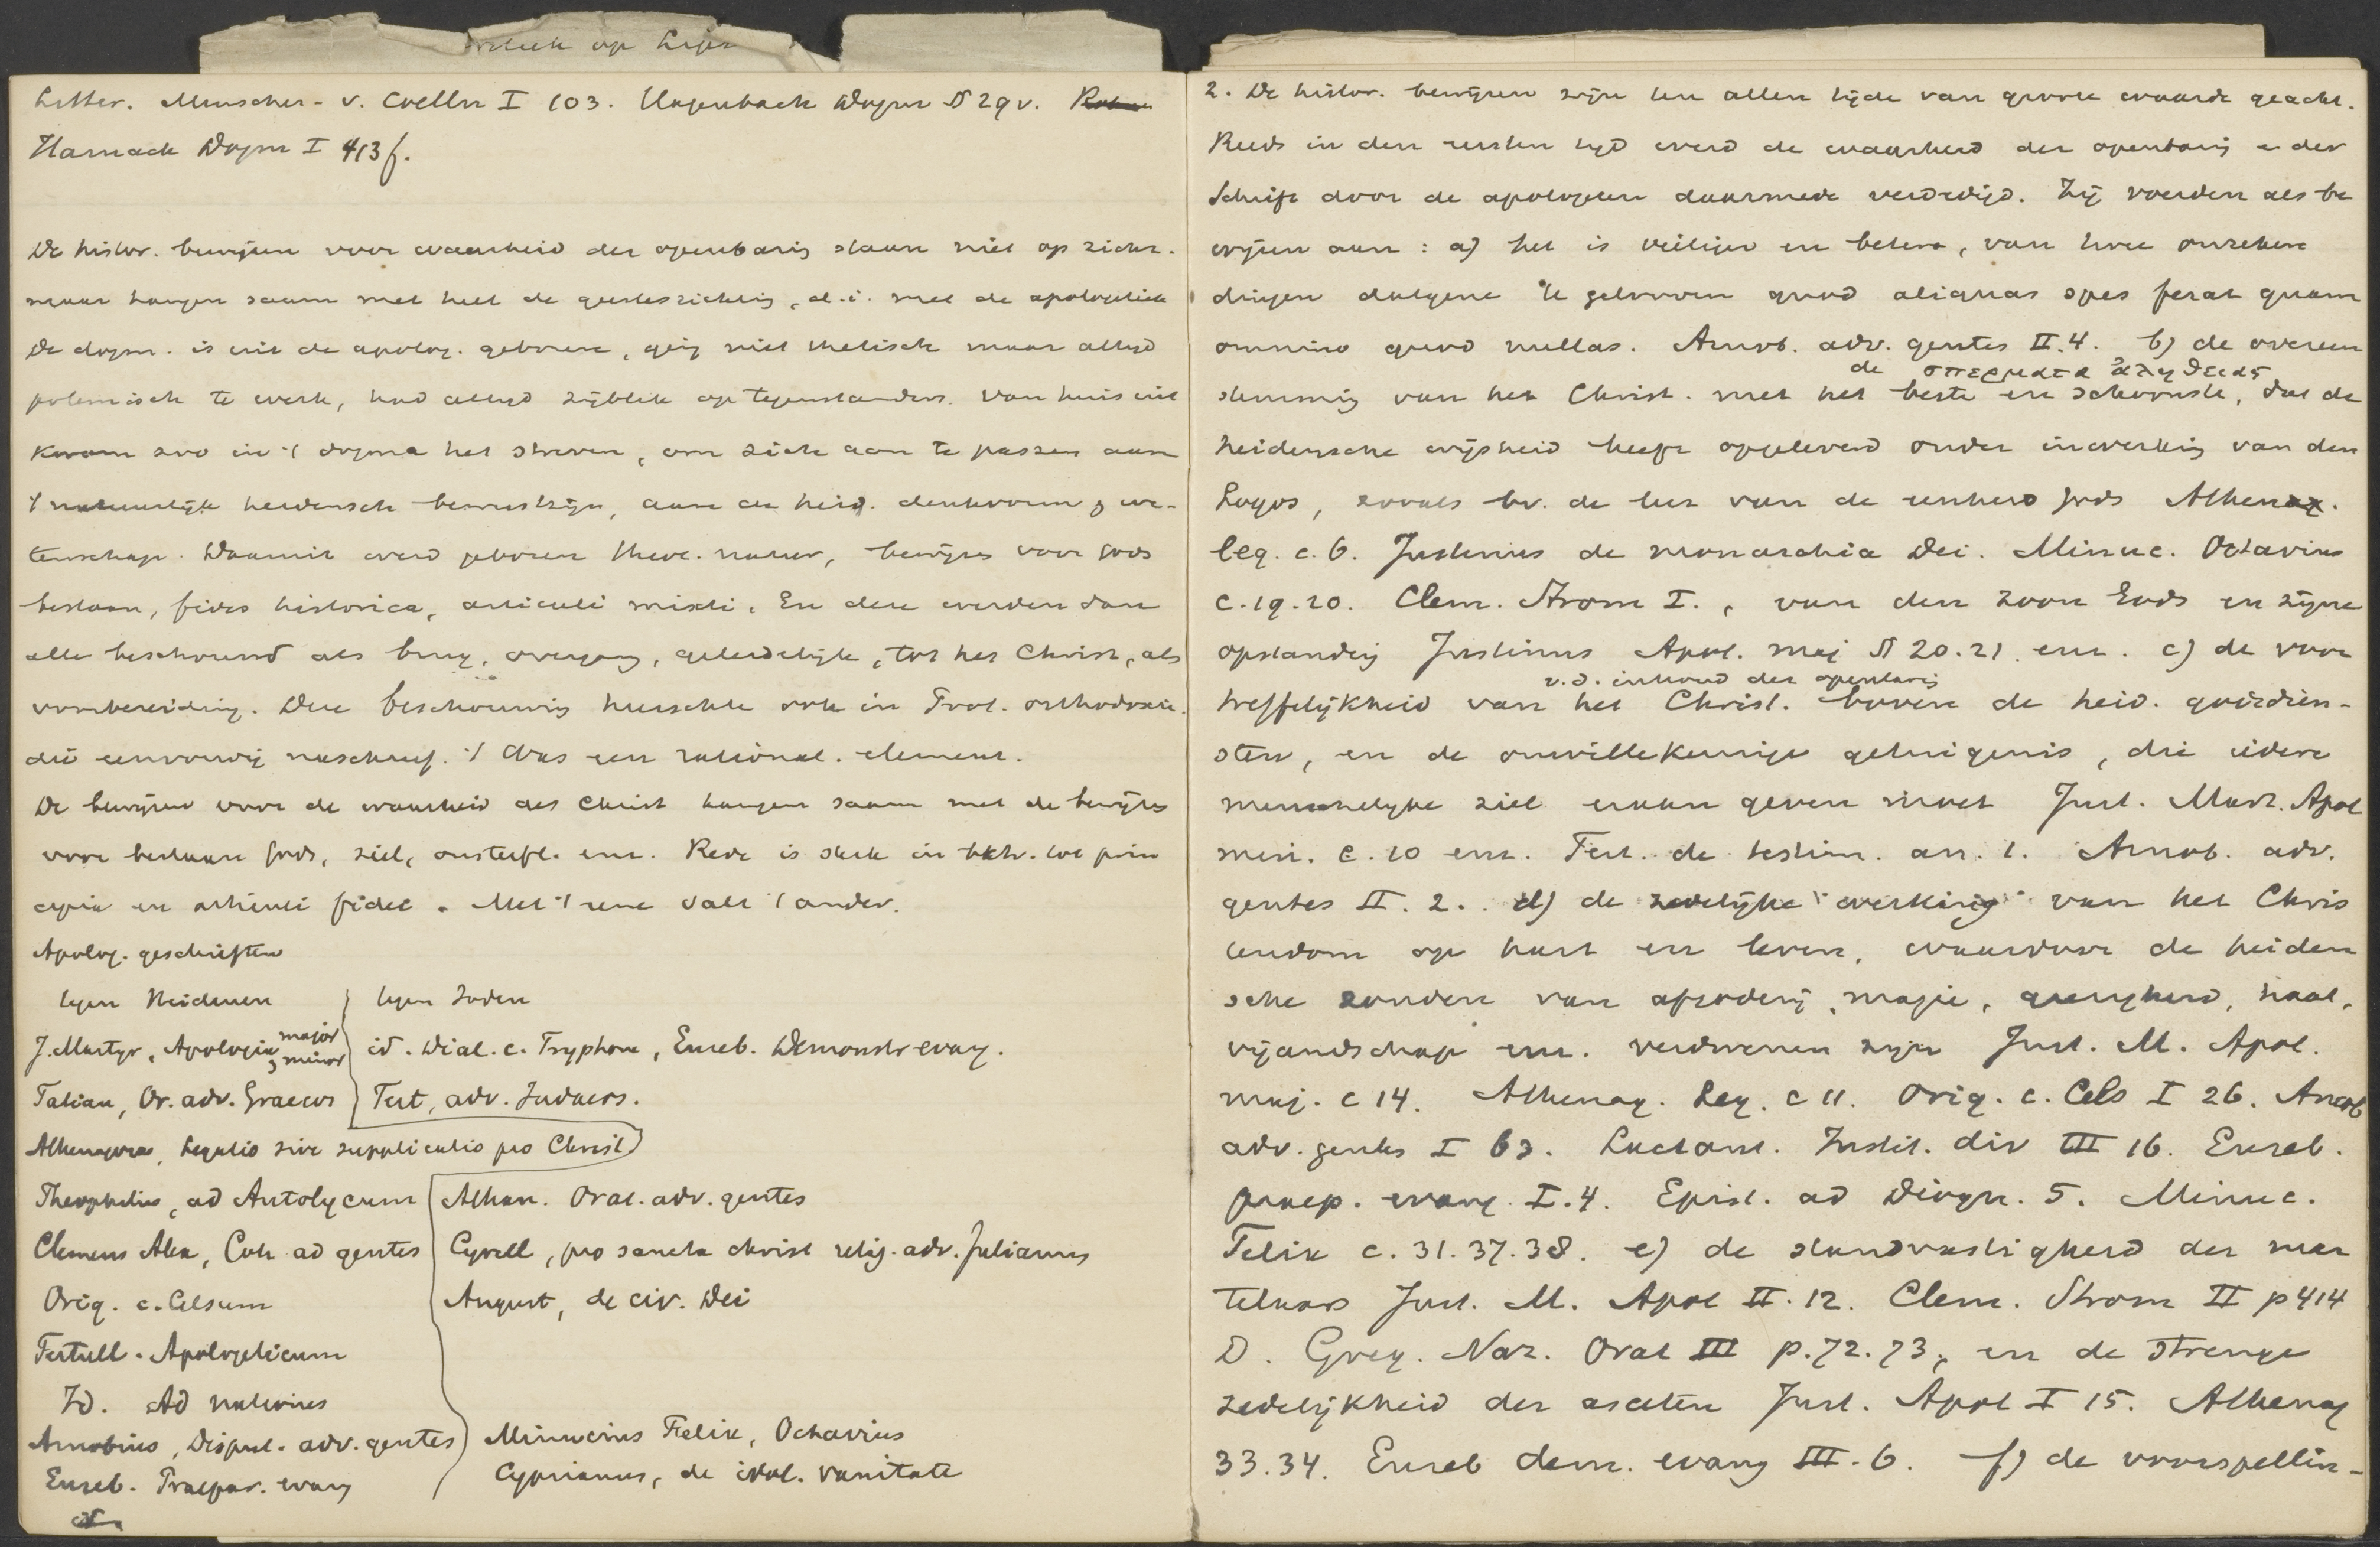 op
Litter. Munscher - v. Coelln I 103. Hagenbach Dogm § 29 v.
Harnack Dogm I 413 f.
De histor. bewijzen voor waarheid der openbaring staan niet op zichz.
maar hangen saam met heel de geestesrichting, d.i. met de apologetiek
De dogm. is uit de apolog. geboren, ging niet thetisch maar altijd
polemisch te werk, had altijd zijblik op tegenstanders. Van huis uit
kwam zoo in 't dogma het streven, om zich aan te passen aan
't natuurlijk heidensch bewustzijn, aan de heid. denkvorm & we-
tenschap. Daaruit werd geboren theol. natur, bewijzen voor Gods
bestaan, fides historica, articuli mixti. En deze werden dan
alle beschouwd als brug, overgang, geleidelijk, tot het Christ, als
voorbereiding. Deze beschouwing heerschte ook in Prot. orthodoxie.
die eenvoudig naschreef. 't Was een rational. element.
De bewijzen voor de waarheid des Christ hangen saam met de bewijzen
voor bestaan Gods, ziel, onsterfl. enz. Rede is sterk in betr. tot prin
cipia en articuli fidei. Met 't eene valt 't ander.
Apolog. geschriften
tegen Heidenen
tegen Joden
J. Martyr, Apologia major & minor
id. Dial. c. Tryphone, Euseb. Demonstr evang.
Tatian, Or. adv. Graecos
Tert, adv. Judaeos.
Athenagoras, Legatio sive supplicatio pro Christ
Theophilus, ad Autolycum
Athan. Orat. adv. gentes
Clemens Alex, Coh ad gentes
Cyrill, pro sancta christ relig. adv. Julianus
Orig. c. Celsum
August, de civ. Dei
Tertull. Apologeticum
Id. Ad nationes
Arnobius, Disput. adv. gentes
Minucius Felix, Octavius
Euseb. Praepar. evang
Cyprianus, de idol. vanitate
2. De histor. bewijzen zijn ten allen tijde van groote waarde geacht.
Reeds in den eersten tijd werd de waarheid der openbaring en der
Schrift door de apologeten daarmede verdedigd. Zij voerden als be
wijzen aan: a) het is veiliger en beter, van twee onzekere
dingen datgene te gelooven quod aliquas spes ferat quam
omnino quod nullas. Arnob. adv. gentes II.4. b) de overeen
de σπερματα ἀληθειας
stemming van het Christ. met het beste en schoonste, dat de
heidensche wijsheid heeft opgeleverd onder inwerking van den
Logos, zooals bv. de leer van de eenheid Gods Athenag.
leg. c. 6. Justinus de monarchia Dei. Minuc. Octavius
c. 19. 20. Clem. Strom I., van den Zoon Gods en zijne
opstanding Justinus Apol. maj § 20. 21. enz. c) de voor
v.d. inhoud der openbaring
treffelijkheid van het Christ. boven de heid. godsdien-
sten, en de onwillekeurige getuigenis, die iedere
menschelijke ziel eraan geven moet Just. Mart. Apol
min. c. 10 enz. Tert. de testim. an. 1. Arnob. adv.
gentes II. 2. d) de zedelijke werking van het Chris
tendom op hart en leven, waardoor de heiden
sche zonden van afgoderij, magie, gierigheid, haat,
vijandschap enz. verdwenen zijn Just. M. Apol.
maj. c 14. Athenag. Leg. c 11. Orig. c. Cels I 26. Arnob
adv. gentes I 63. Lactant. Instit. div III 16. Euseb.
praep. evang. I.4. Epist. ad Diogn. 5. Minuc.
Felix c. 31. 37. 38. e) de standvastigheid der mar
telaars Just. M. Apol II. 12. Clem. Strom II p 414
D. Greg. Naz. Orat III p. 72. 73, en de strenge
zedelijkheid der asceten Just. Apol I 15. Athenag
33. 34. Euseb dem. evang III. 6. f) de voorspellin-